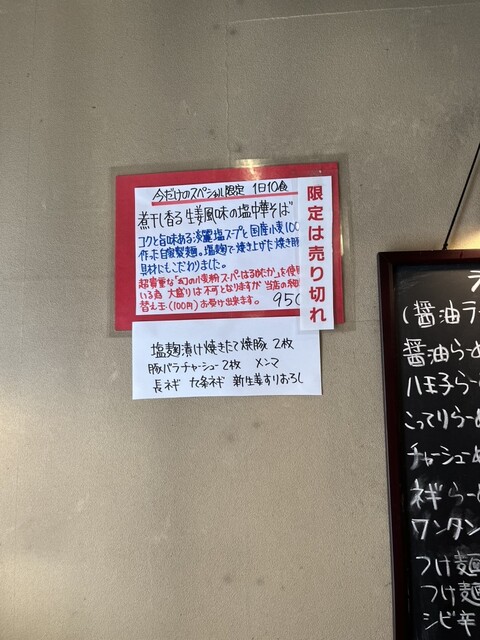 今だけのスペシャル限定 1日10食
煮干し香る生姜風味の塩中華そば
コクと旨味ある淡麗塩スープと国産小麦100
作った自家製麺。塩麹で焼き上げた焼き豚
具材にもこだわりました。
超貴重な「幻の小麦粉 スーパーはるめたか」を使用
いる為 大盛りは不可となりますが 当店の細
替え玉(100円)お受け出来ます。 950
限定は売り切れ
塩麹漬け焼きたて焼豚 2枚
豚バラチャーシュー2枚 メンマ
長ネギ 九条ネギ 新生姜すりおろし
ラ
(醤油ラー
醤油らー
八王子らー
こってりらーめ
チャーシューめ
ネギらーめ
ワンタン
つけ麺
つけ麺
シビ辛